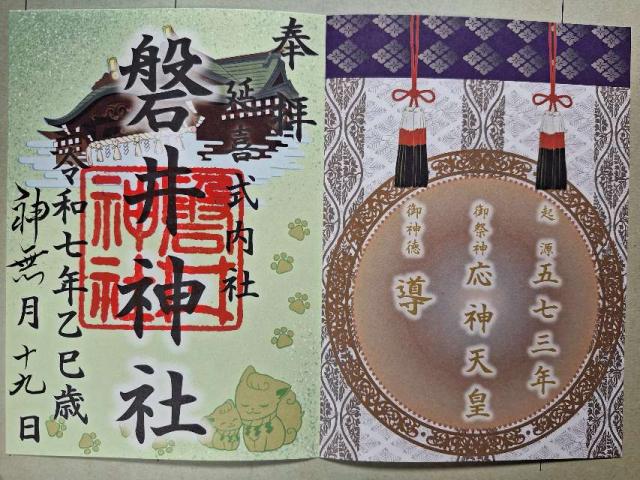 起源 五七三年
御祭神 応神天皇
御神徳 導
奉拝
延喜式内社
磐井神社
磐井神社
令和七年乙巳歳
神無月十九日